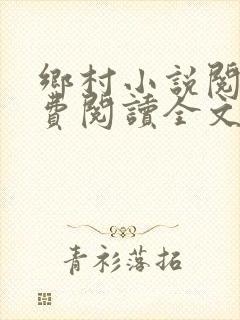 鄉村小說閱
費閱讀全文
青衫落拓